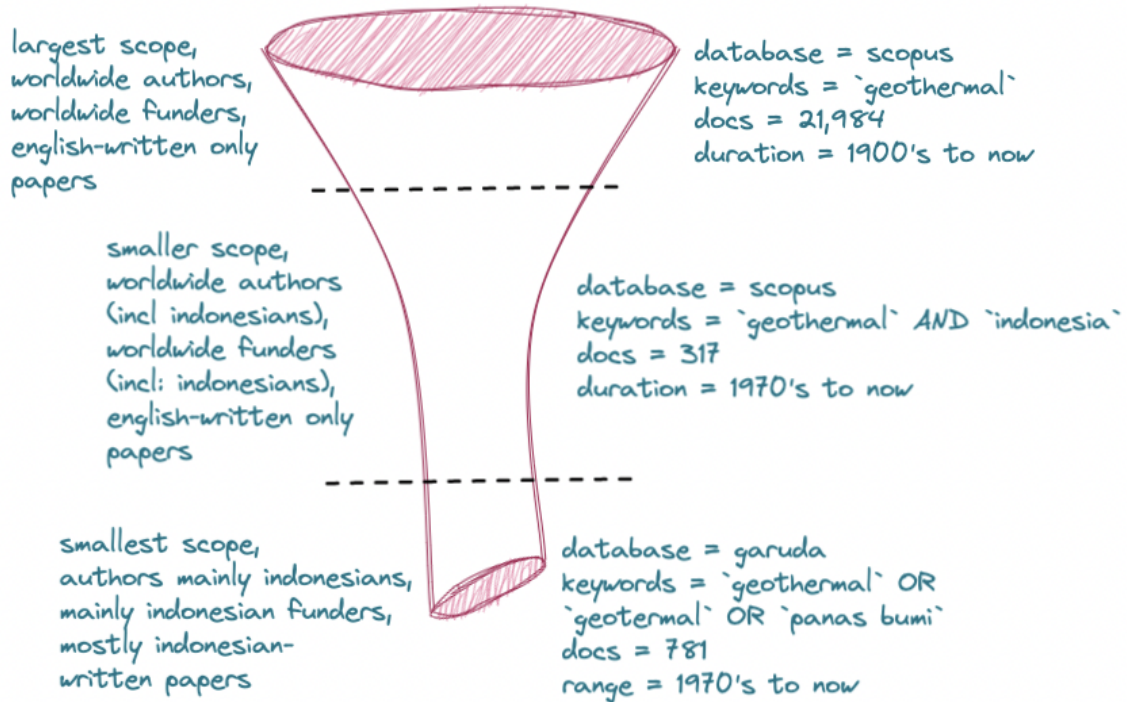 largest scope,
worldwide authors,
worldwide funders,
english-written only
papers
database = scopus
keywords = `geothermal`
docs = 21,984
duration = 1900's to now
smaller scope,
worldwide authors
(incl indonesians),
worldwide funders
(incl: indonesians),
english-written only
papers
database = scopus
keywords = `geothermal` AND `indonesia`
docs = 317
duration = 1970's to now
smallest scope,
authors mainly indonesians,
mainly indonesian funders,
mostly indonesian-
written papers
database = garuda
keywords = `geothermal` OR
`geotermal` OR `panas bumi`
docs = 781
range = 1970's to now